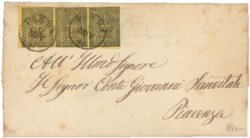 All' Illmo Signore
Il Signor Conte Giovanni Sanvitale
Piacenza